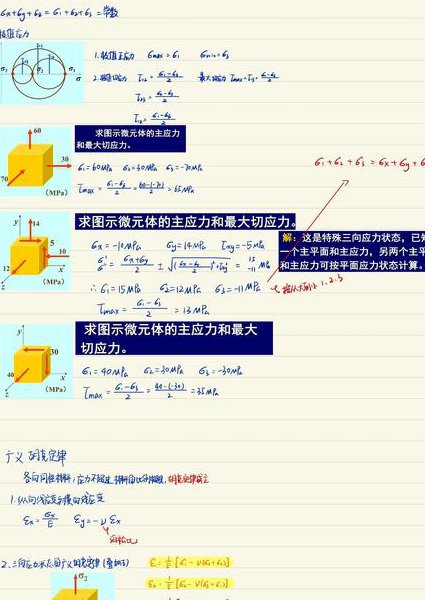 6x+6y+6z = 6₁+6₂+6₃ = 常数
极值应力
1. 极值正应力 6max = 6₁ 6min = 6₃
2. 极值切应力 τ₁₂ = (6₁-6₂)/2 最大切应力 τmax = τ₁₃ = (6₁-6₃)/2
τ₂₃ = (6₂-6₃)/2
τ₁₃ = (6₁-6₃)/2
求图示微元体的主应力
和最大切应力。
60
30
70
(MPa)
6₁ = 60MPa 6₂ = 30MPa 6₃ = -70MPa
τmax = (6₁-6₃)/2 = (60-(-70))/2 = 65MPa
6₁+6₂+6₃ = 6x+6y+6
求图示微元体的主应力和最大切应力。
y
14
5
10
12
x
z
(MPa)
解：这是特殊三向应力状态，已知
一个主平面和主应力，另两个主平
和主应力可按平面应力状态计算。
6x = -10MPa 6y = 14MPa τxy = -5MPa
6'
6'' = (6x+6y)/2 ± √((6x-6y)/2)²+τxy² = 15
-11 MPa
∴ 6₁ = 15MPa 6₂ = 12MPa 6₃ = -11MPa
1.2.3
τmax = (6₁-6₃)/2 = 13MPa
求图示微元体的主应力和最大
切应力。
y
30
40
x
z
(MPa)
6₁ = 40MPa 6₂ = 30MPa 6₃ = -30MPa
τmax = (6₁-6₃)/2 = (40-(-30))/2 = 35MPa
广义胡克定律
各向同性材料，应力不超过材料的比例极限，胡克定律成立
1. 纵向线应变与横向线应变
εx = 6x/E εy = -ν εx
泊松比
2. 三向应力状态的广义胡克定律（叠加法） ε₁ = 1/E [6₁ - ν(6₂+6₃)]
ε₂ = 1/E [6₂ - ν(6₁+6₃)]
σ₂